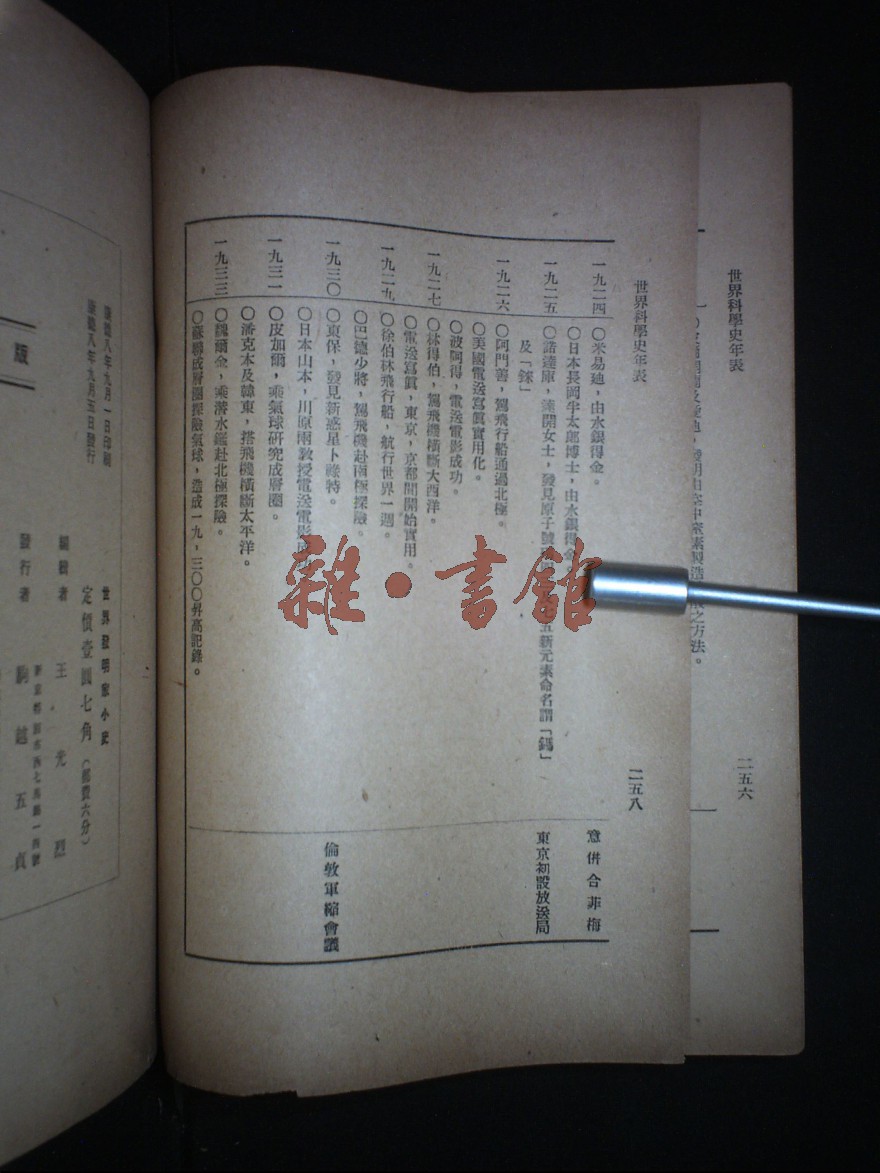 世界科學史年表
二五六
之方法。
世界科學史年表
二五八
一九二四
〇米易迪，由水銀得金。
意併合菲梅
〇日本長岡半太郎博士，由水銀得金。
一九二五
〇諾達庫，達開女士，發見原子號
五新元素命名謂「鎷」
東京初設放送局
及「錸」
一九二六
〇阿門善，駕飛行船通過北極。
〇美國電送寫眞實用化。
〇波阿得，電送電影成功。
一九二七
〇林得伯，駕飛機橫斷大西洋。
〇電送寫眞，東京，京都間開始實用。
一九二九
〇徐伯林飛行船，航行世界一週。
〇巴德少將，駕飛機赴南極探險。
一九三〇
〇東保，發見新惑星卜祿特。
倫敦軍縮會議
〇日本山本，川原兩教授電送電影成功
一九三一
〇皮加爾，乘氣球研究成層圈。
〇潘克本及韓東，搭飛機橫斷太平洋。
〇魏爾金，乘潛水艦赴北極探險。
一九三三
〇蘇聯成層圈探險氣球，造成一九，三〇〇昇高記錄。
雜·書館
版
康德八年九月一日印刷
康德八年九月五日發行
世界發明家小史
定價壹圓七角（郵費六分）
編輯者 王光烈
發行者 駒越五貞